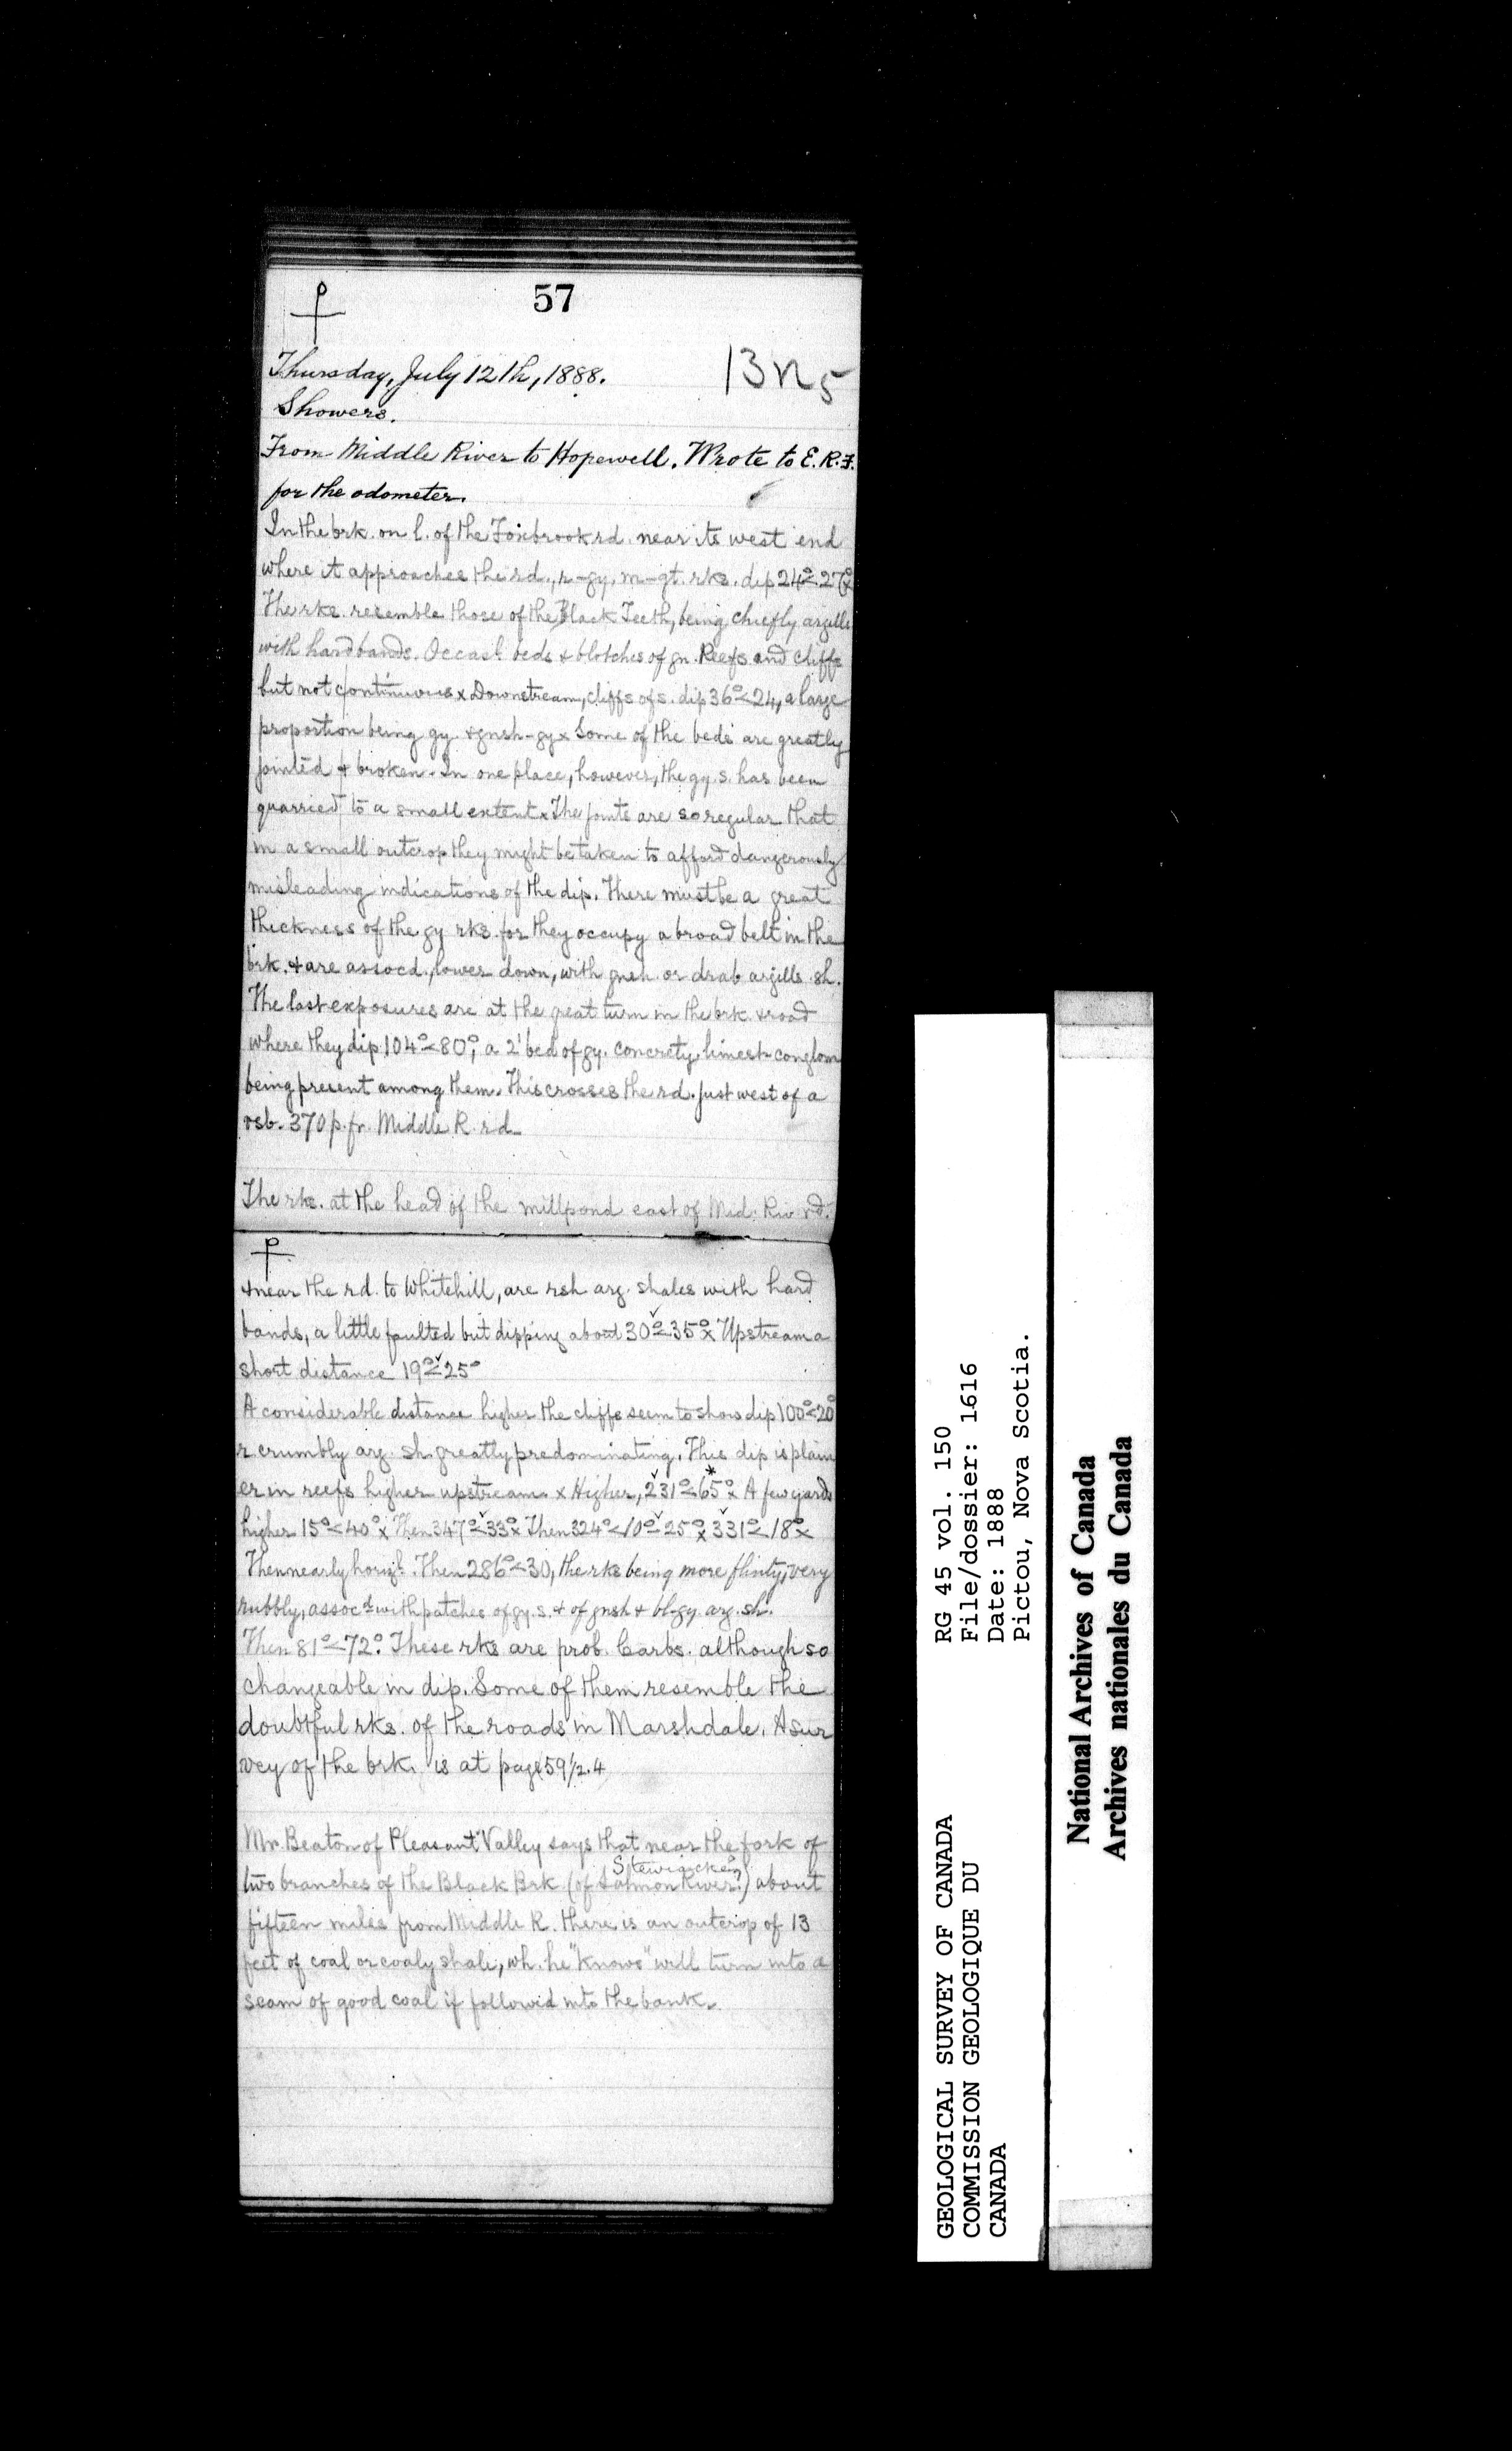 57
13 n 5
Thursday, July 12th, 1888.
Showers.
From Middle River to Hopewell. Wrote to E.R.F.
for the odometer.
In the brk. on l. of the Foxbrook rd. near its west end
where it approaches the rd., r-gy, m-gt. rks. dip 24°<27° x
The rks. resemble those of the Black Teeth, being chiefly argills
with hard bands. Occasl. beds & blotches of gn. Reefs and cliffs
but not continuous x Downstream, cliffs of s. dip 36°<24, a large
proportion being gy. & gnsh-gy x Some of the beds are greatly
jointed & broken. In one place, however, the gy. s. has been
quarried to a small extent x The joints are so regular that
in a small outcrop they might be taken to afford dangerously
misleading indications of the dip. There must be a great
thickness of the gy rks. for they occupy a broad belt in the
brk. & are assocd., lower down, with gnsh. or drab argills. sh.
The last exposures are at the great turn in the brk. & road
where they dip 104°<80°, a 2' bed of gy. concrety. limest-conglom
being present among them. This crosses the rd. just west of a
rsb. 370 p. fr. Middle R. rd.
The rks. at the head of the millpond east of Mid. Riv rd.
& near the rd. to Whitehill, are rsh arg. shales with hard
bands, a little faulted but dipping about 30°<35° x Upstream a
short distance 19°<25°
A considerable distance higher the cliffs seem to show dip 100°<20°
r. crumbly arg. sh. greatly predominating. This dip is plain
er in reefs higher upstream x Higher, 231°<65° x A few yards
higher 15°<40° x Then 347°<33° x Then 324°<10°<25° x 331°<18° x
Then nearly horizl. Then 286°<30, the rks being more flinty, very
rubbly, assocd with patches of gy. s. & of gnsh & bl-gy. arg. sh.
Then 81°<72°. These rks are prob. Carbs. although so
changeable in dip. Some of them resemble the
doubtful rks. of the roads in Marshdale. A sur
vey of the brk. is at page 59 1/2.4
Mr. Beaton of Pleasant Valley says that near the fork of
Stewiacke?
two branches of the Black Brk. (of Salmon River?) about
fifteen miles from Middle R. there is an outcrop of 13
feet of coal or coaly shale, wh. he "knows" will turn into a
seam of good coal if followed into the bank.
RG 45 vol. 150
File/dossier: 1616
Date: 1888
Pictou, Nova Scotia.
GEOLOGICAL SURVEY OF CANADA
COMMISSION GEOLOGIQUE DU
CANADA
National Archives of Canada
Archives nationales du Canada